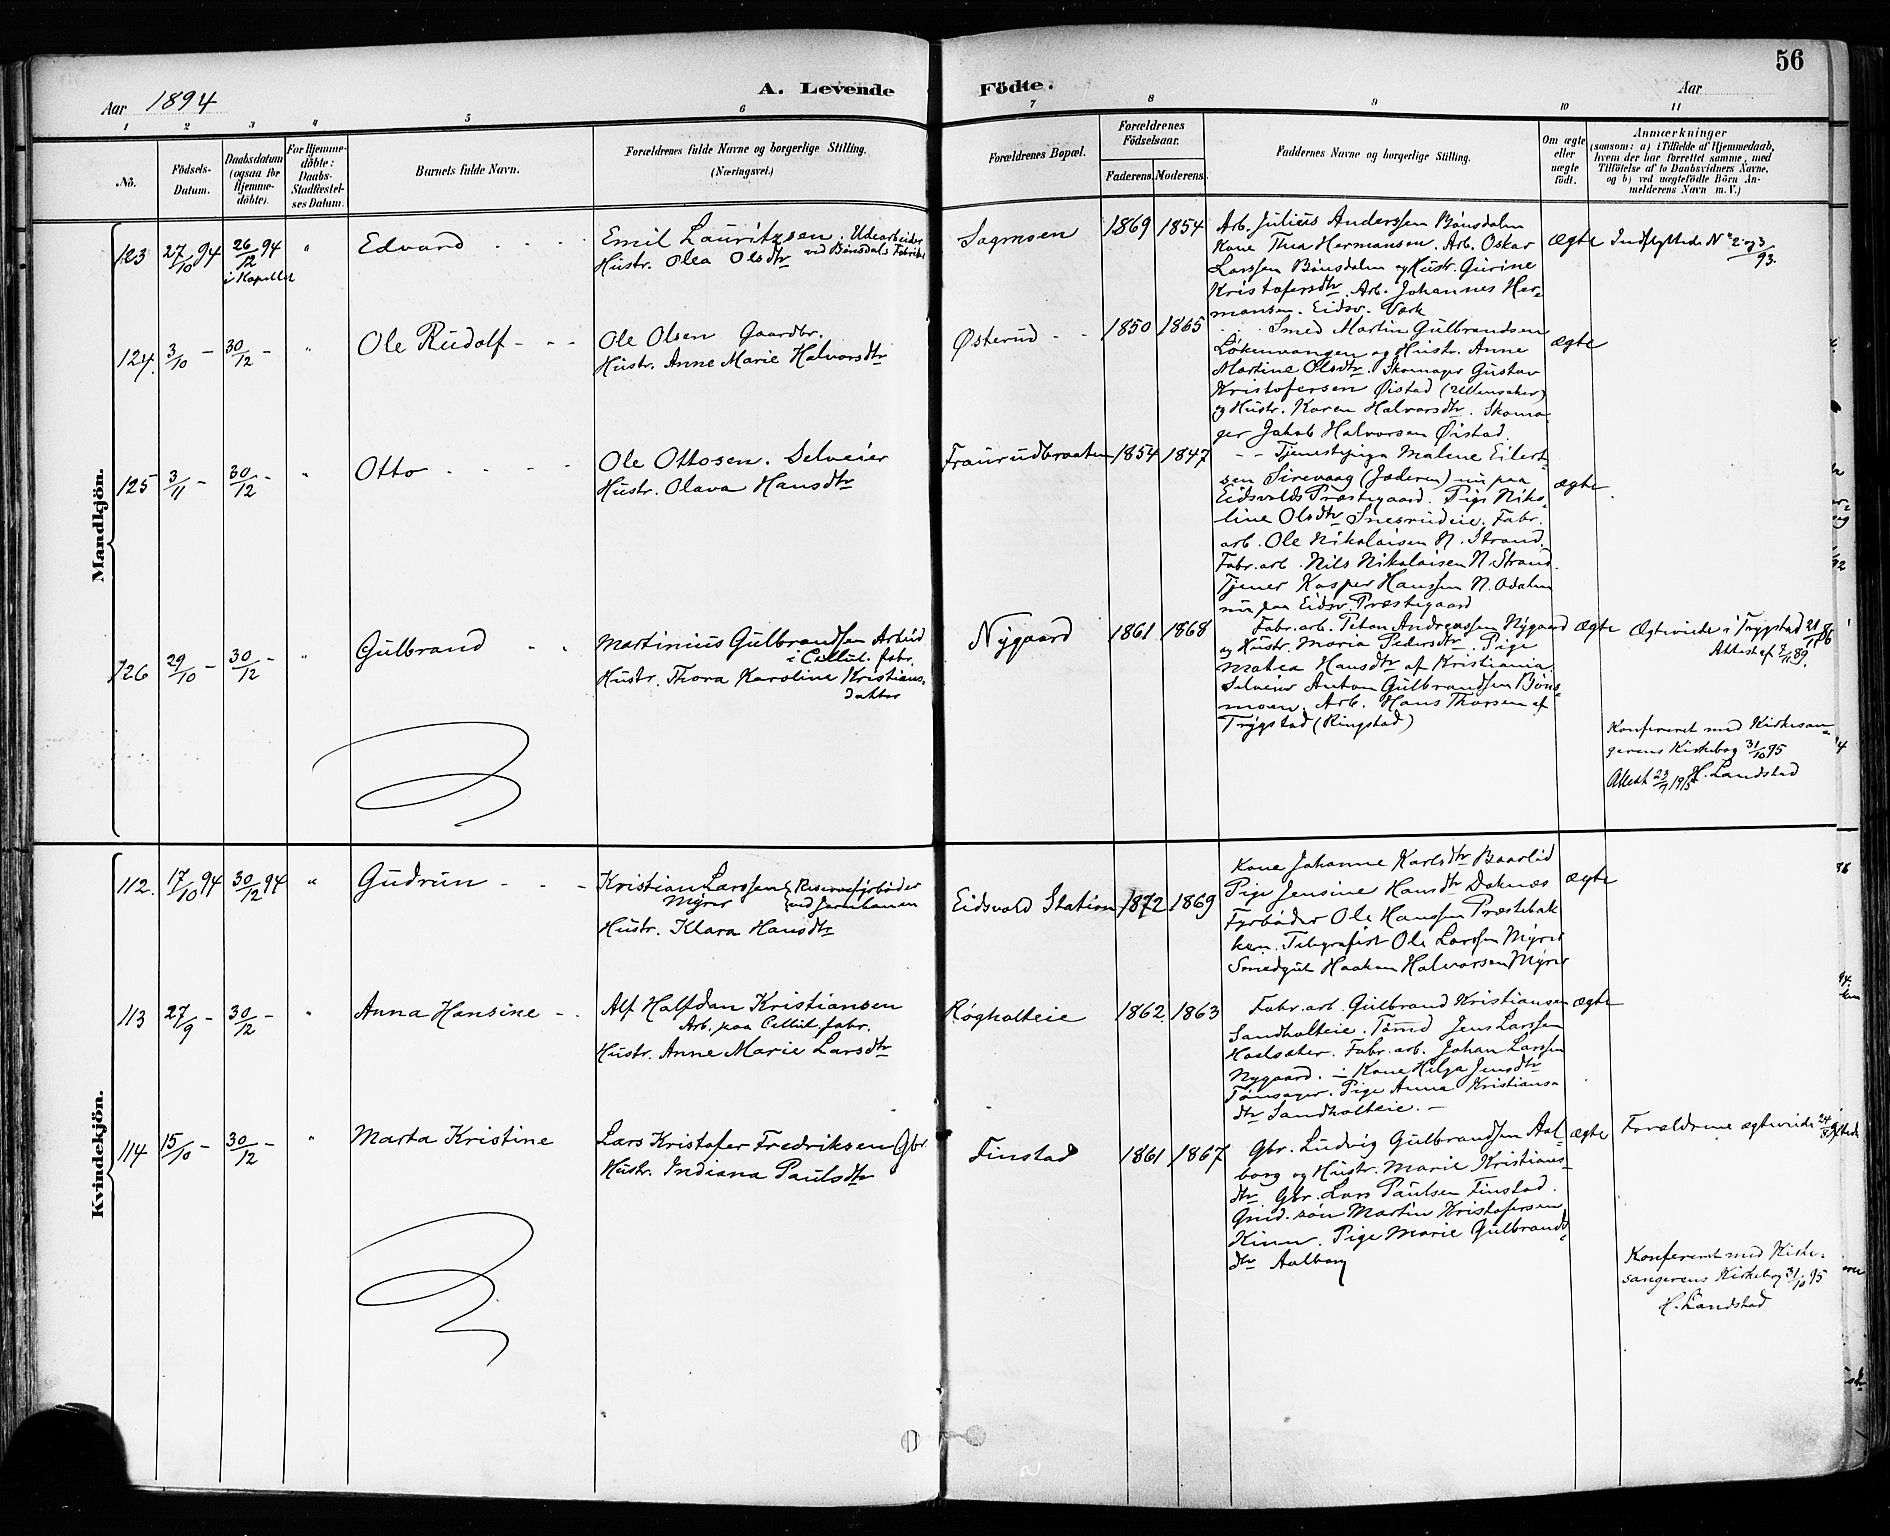 56
Aar 1894
A. Levende Födte.
Aar
1 2 3 4 5 6 7 8 9 10 11
No.
Födsels-
Datum.
Daabsdatum
(ogsaa for
Hjemme-
döbte).
For Hjemme-
döbte:
Daabs-
Stadfæstel-
ses Datum.
Barnets fulde Navn.
Forældrenes fulde Navne og borgerlige Stilling.
(Næringsvei.)
Forældrenes Bopæl.
Forældrenes
Födselsaar.
Faderens. Moderens.
Faddernes Navne og borgerlige Stilling.
Om ægte
eller
uægte
födt.
Anmærkninger
(saasom: a) i Tilfælde af Hjemmedaab,
hvem der har forrettet samme, med
Tilföielse af to Daabsvidners Navne,
og b) ved uægtefödte Börn An-
melderens Navn m. V.)
Mandkjön.
123 27/10 94 26/12 94 i Kapellet "
Edvard
Emil Lauritzsen. Udearbeider
ved Bönsdals Fabrikk
Hustr. Olea Olsdtr
Sagmoen 1869 1854
Arb. Julius Anderssen Bönsdalen
Kone Thea Hermansen. Arb. Oskar
Larssen Bönsdalen og Hustr. Gurine
Kristofersdtr. Arb. Johannes Her-
mansen. Eidsv. Værk
ægte
Indflyttede No 2 og 3/93.
124. 3/10 - 30/12 - "
Ole Rudolf
Ole Olsen Gaardbr.
Hustr. Anne Marie Halvorsdtr
Østerud 1850 1865
Smed Martin Gulbrandsen
Løkenvangen og Hustr. Anne
Martine Olsdtr. Skomager Gustav
Kristofersen Øistad (Ullensaker)
og Hustr. Karen Halvorsdtr. Skoma-
ger Jakob Halvorsen Øistad.
ægte
125 3/11 - 30/12 - "
Otto
Ole Ottosen. Selveier
Hustr. Olava Hansdtr
Fraurudbraaten 1854 1847
Tjenestepige Malene Eilert-
sen Sirevaag (Jæderen) nu paa
Eidsvolds Præstegaard. Pige Niko-
line Olsdtr Snesrudeie. Fabr.
arb. Ole Nikolaisen N. Strand.
Fabr. arb. Nils Nikolaisen N. Strand.
Tjener Kasper Hanssen N. Odalen
nu paa Eidsv. Præstegaard
ægte
126 29/10 - 30/12 - "
Gulbrand
Martinius Gulbrandsen Arbeid
i Cellul. fabr.
Hustr. Thora Karoline Kristians-
datter
Nygaard 1861 1868
Fabr. arb. Peter Andreassen Nygaard
og Hustr. Maria Pedersdtr. Pige
Matea Hansdtr af Kristiania.
Selveier Anton Gulbrandsen Böns-
moen. Arb. Hans Thorsen af
Trygstad (Ringstad)
ægte
Ægteviede i Trygstad
Attest af
Konfereret med Kirkesan-
gerens Kirkebog 31/10 95
H. Landstad
Attest 23/7 1915
Kvindekjön.
112. 17/10 94 30/12 94 "
Gudrun
Kristian Larssen Myrer { Reservefyrbøder
ved Jernbanen
Hustr. Klara Hansdtr
Eidsvold Station 1872 1869
Kone Johanne Karlsdtr Baarlid
Pige Jensine Hansdtr Doknæs
Fyrbøder Ole Hanssen Præstebak-
ken. Telegrafist Ole Larssen Myrer
Smedgut Haakon Halvorsen Myrer
ægte
113 27/9 - 30/12 - "
Anna Hansine
Alf Halfdan Kristiansen
Arb. paa Cellul. fabr.
Hustr. Anne Marie Larsdtr
Røgholteie 1862 1863
Fabr. arb. Gulbrand Kristiansen
Sandholteie. Tømd Jens Larssen
Hoelsæter. Fabr. arb. Johan Larssen
Nygaard. - Kone Helga Jensdtr
Tønsager. Pige Anna Kristians-
dtr Sandholteie. -
ægte
114 15/10 - 30/12 - "
Marta Kristine
Lars Kristofer Fredriksen Gbr.
Hustr. Indiana Paulsdtr
Finstad 1861 1867
Gbr. Ludvig Gulbrandsen Aal-
borg og Hustr. Marie Kristians-
dtr Gbr. Lars Paulsen Finstad.
Grd. søn Martin Kristofersen
Kinn. Pige Marie Gulbrands-
dtr Aalborg
ægte
Forældrene ægteviede
Konfereret med Kirke-
sangerens Kirkebog 31/10 95
H. Landstad